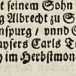 it seinem Sohn
g Albrecht zu S
nspurg / vnnd
aysers Carls T
in Herbstmon